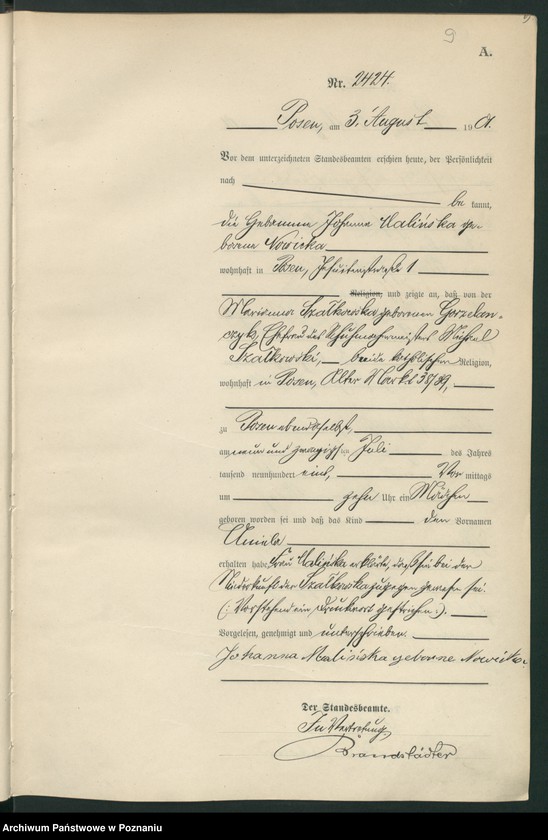 9
A.
Nr. 2424.
Posen, am 3. August 1901.
Vor dem unterzeichneten Standesbeamten erschien heute, der Persönlichkeit
nach
be kannt,
die Hebamme Johanna Malińska ge-
borene Nowicka
wohnhaft in Posen, Jesuitenstraße 1
Religion, und zeigte an, daß von der
Marianna Szatkowska geborenen Gorzelan-
czyk, Ehefrau des Schuhmachermeisters Michael
Szatkowski, beide katholischer Religion,
wohnhaft in Posen, Alter Markt 38/39,
zu Posen ebendaselbst,
am neun und zwanzigsten Juli des Jahres
tausend neunhundert eins, Vor mittags
um zehn Uhr ein Mädchen
geboren worden sei und daß das Kind den Vornamen
Aniela
erhalten habe. Frau Malińska erklärte, daß sie bei der
Niederkunft der Szatkowska zugegen gewesen sei.
(: Vorstehend ein Druckwort gestrichen :).
Vorgelesen, genehmigt und unterschrieben.
Johanna Malińska geborne Nowicka
Der Standesbeamte.
In Vertretung
Brandstädter
Archiwum Państwowe w Poznaniu